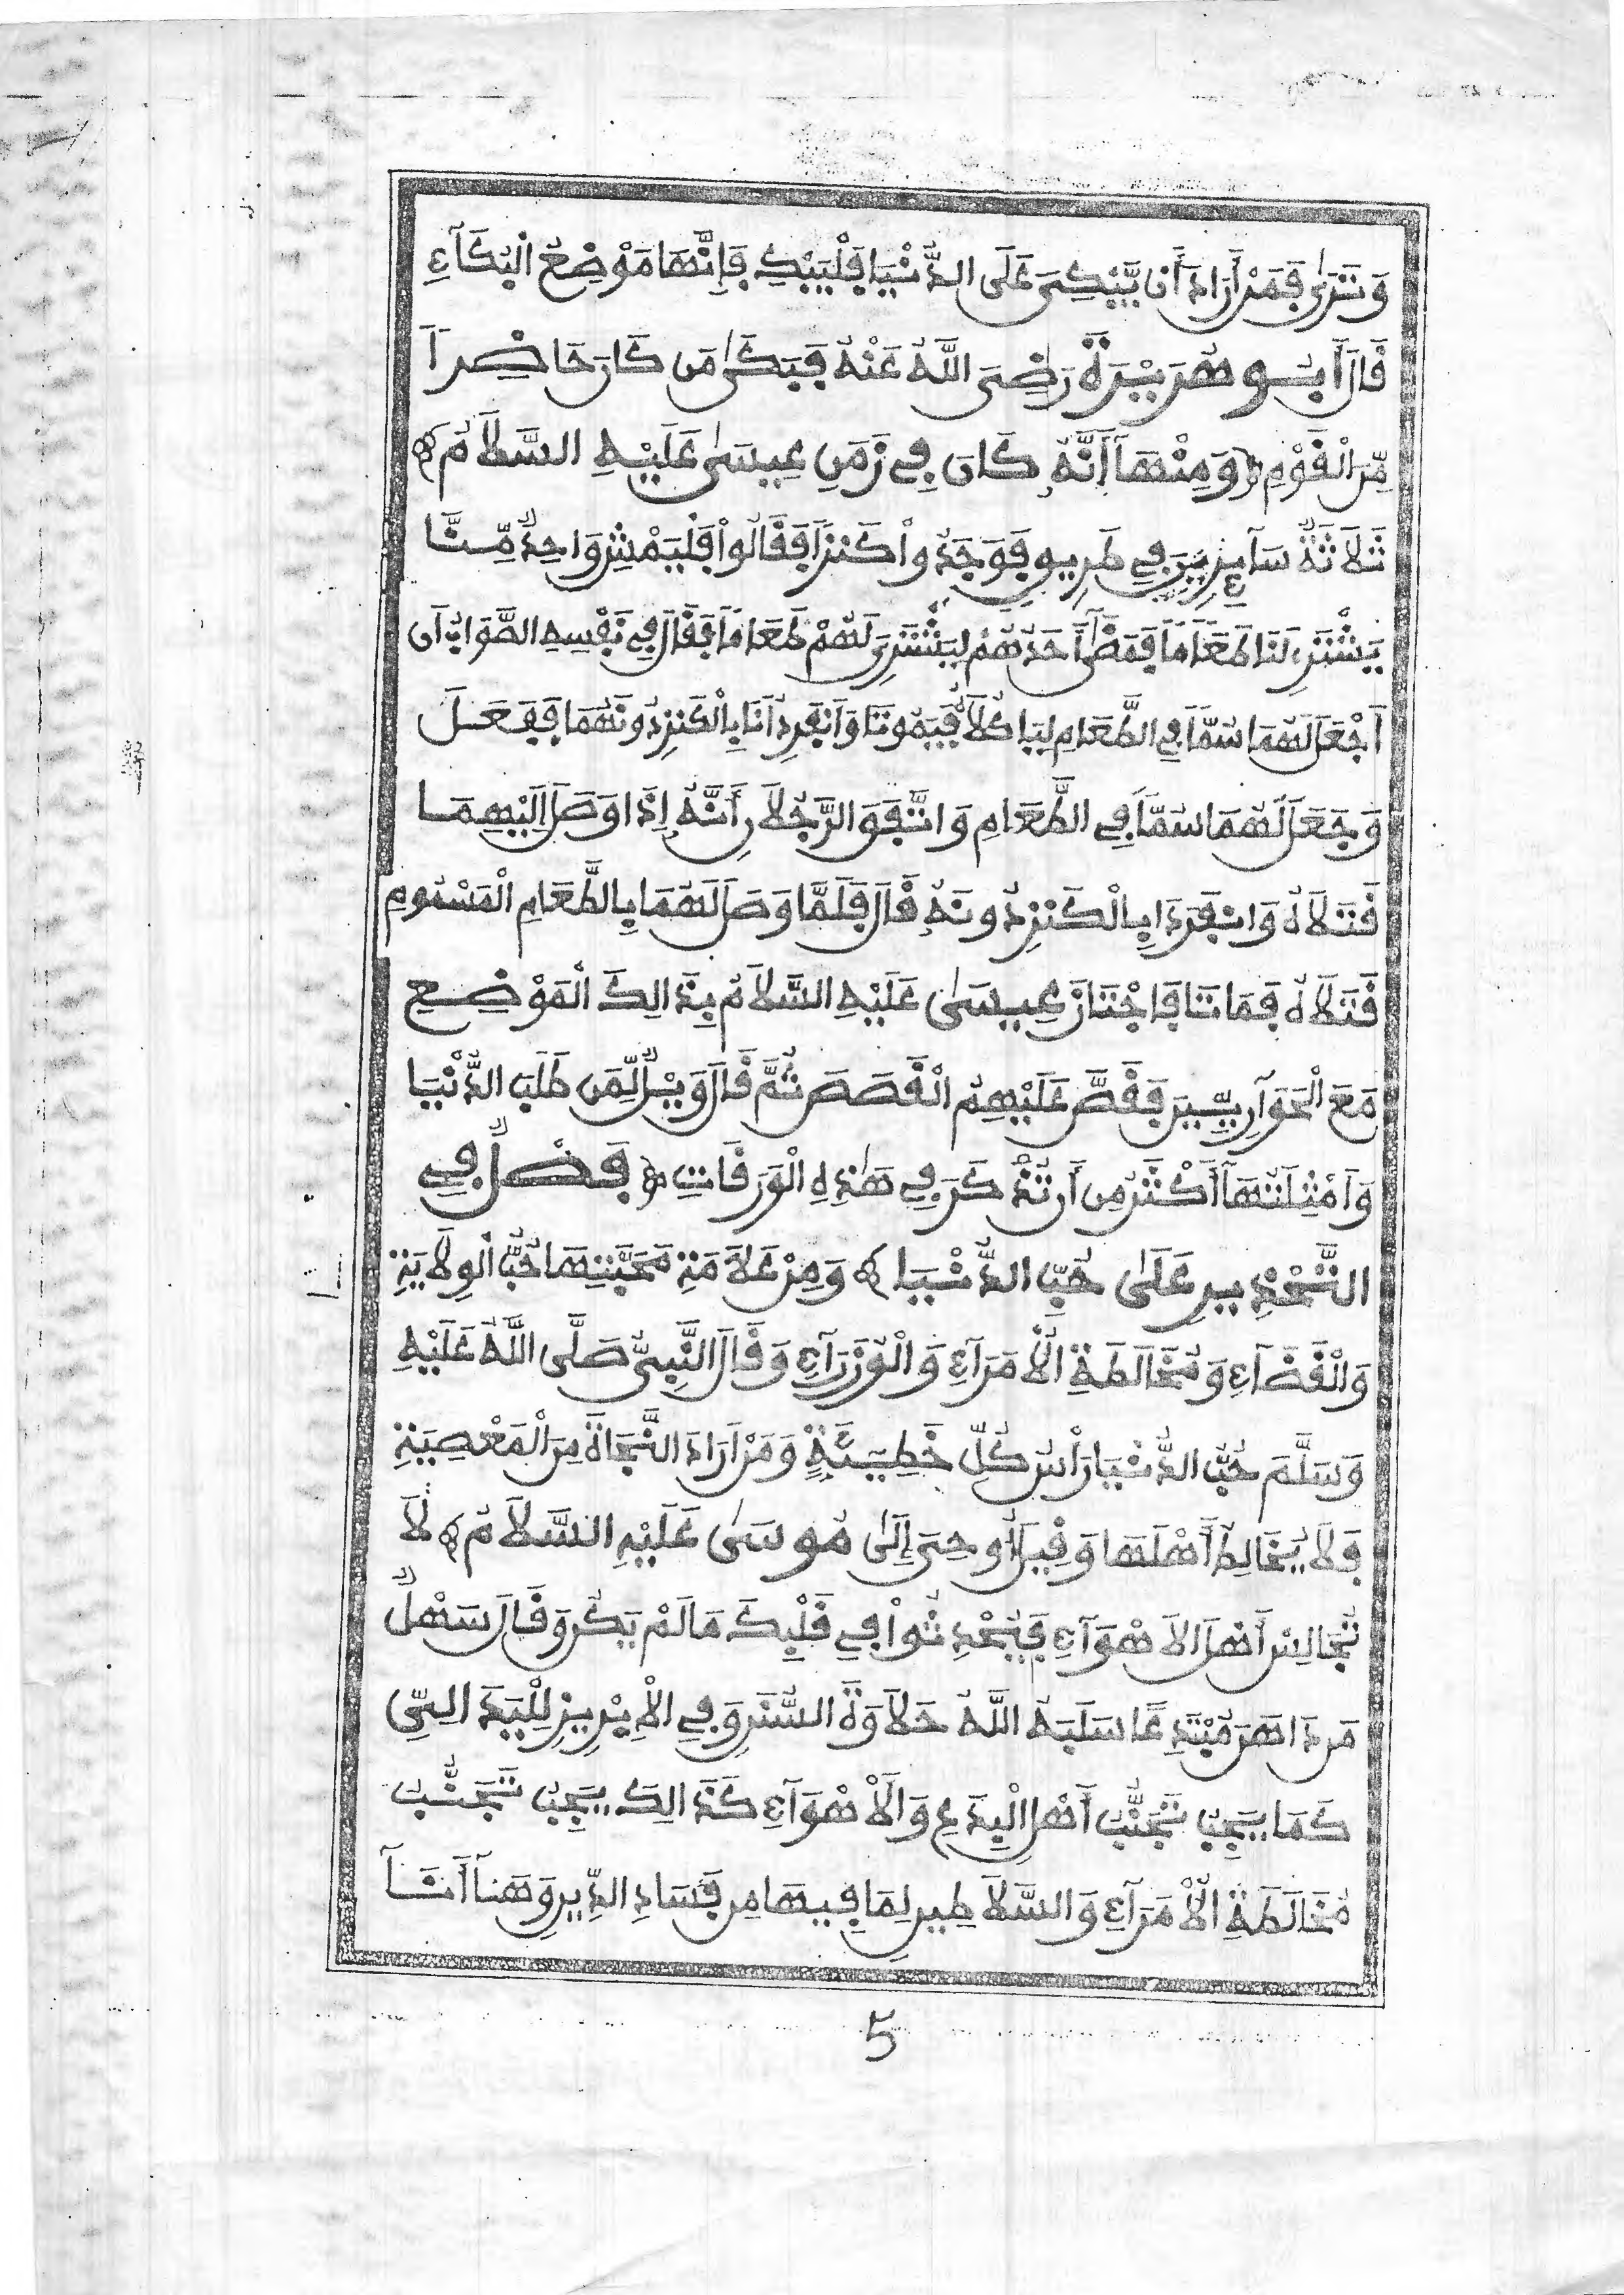 وَتَرَىٰ فَمَنْ أَرَادَ أَن يَّبْكِىَ عَلَى الدُّنْيَا فَلْيَبْكِ فَإِنَّهَا مَوْضِعُ الْبُكَآءِ
قَالَ أَبُو هُرَيْرَةَ رَضِىَ اللَّهُ عَنْهُ فَبَكَىٰ مَن كَانَ حَاضِراً
مِّنَ الْقَوْمِ وَمِنْهَآ أَنَّهُ كَانَ فِى زَمَنِ عِيسَىٰ عَلَيْهِ السَّلَامُ
ثَلَاثَةٌ سَآئِرِينَ فِى طَرِيقٍ فَوَجَدُواْ كَنزاً فَقَالُواْ فَلْيَمْشِ وَاحِدٌ مِّنَّا
يَشْتَرِ لَنَا طَعَاماً فَمَضَىٰ أَحَدُهُمْ لِيَشْتَرِىَ لَهُمْ طَعَاماً فَقَالَ فِى نَفْسِهِ الصَّوَابُ أَن
أَجْعَلَ لَهُمَا سُمّاً فِى الطَّعَامِ لِيَاكُلَا فَيَمُوتَا وَأَنفَرِدُ أَنَا بِالْكَنزِ دُونَهُمَا فَفَعَلَ
وَجَعَلَ لَهُمَا سَمّاً فِى الطَّعَامِ وَاتَّفَقَ الرَّجُلَانِ أَنَّهُ إِذَا وَصَلَ إِلَيْهِمَا
قَتَلَاهُ وَانفَرَدَا بِالْكَنزِ دُونَهُ قَالَ فَلَمَّا وَصَلَ لَهُمَا بِالطَّعَامِ الْمَسْمُومِ
قَتَلَاهُ فَمَاتَا فَاجْتَازَ عِيسَىٰ عَلَيْهِ السَّلَامُ بِذَالِكَ الْمَوْضِعِ
مَعَ الْحَوَارِيِّينَ فَقَصَّ عَلَيْهِمُ الْقَصَصَ ثُمَّ قَالَ وَيْلٌ لِّمَن طَلَبَ الدُّنْيَا
وَأَمْثِلَتُهَآ أَكْثَرُ مِنْ أَن تُذْكَرَ فِى هَٰذِهِ الْوَرَقَاتِ فَصْلٌ فِى
التَّحْذِيرِ عَلَىٰ حُبِّ الدُّنْيَا وَمِنْ عَلَامَةِ مَحَبَّتِهَا حُبُّ الْوِلَايَةِ
وَالْقَضَآءِ وَمُخَالَطَةِ الْأُمَرَآءِ وَالْوُزَرَآءِ وَقَالَ النَّبِىُّ صَلَّى اللَّهُ عَلَيْهِ
وَسَلَّمَ حُبُّ الدُّنْيَا رَأْسُ كُلِّ خَطِيئَةٍ وَمَنْ أَرَادَ النَّجَاةَ مِنَ الْمَعْصِيَةِ
فَلَا يُخَالِطْ أَهْلَهَا وَقِيلَ أُوحِىَ إِلَىٰ مُوسَىٰ عَلَيْهِ السَّلَامُ لَا
تُجَالِسْ أَهْلَ الْأَهْوَآءِ فَيُحْدِثُواْ فِى قَلْبِكَ مَا لَمْ يَكُن وَقَالَ سَهْلٌ
مَن دَاهَنَ مُبْتَدِعاً سَلَبَهُ اللَّهُ حَلَاوَةَ السُّنَنِ وَفِى الْإِبْرِيزِ لِلَّبَدَ الِتِى
كَمَا يَجِبُ تَجَنُّبُ أَهْلِ الْبِدَعِ وَالْأَهْوَآءِ كَذَالِكَ يَجِبُ تَجَنُّبُ
مُخَالَطَةِ الْأُمَرَآءِ وَالسَّلَاطِينِ لِمَا فِيهَا مِن فَسَادِ الدِّينِ وَهَنآ أَنَآ
5